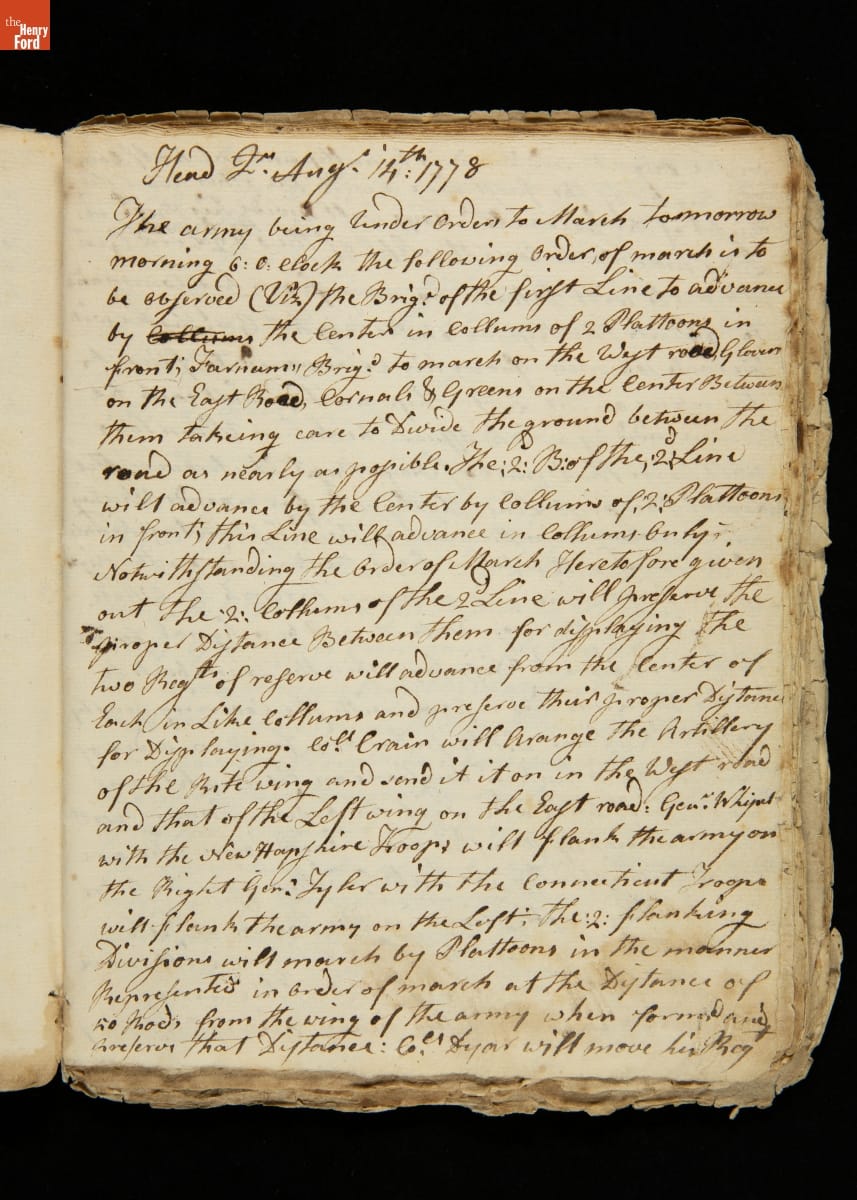 the
Henry
Ford
Head Qrs. Augst. 14th: 1778
The army being Under Orders to March tomorrow
morning 6: O: Clock the following Order, of march is to
be observed (Viz) the Brigd. of the first Line to advance
by Collums the Center in Collums of 2 Plattoons in
front; Farnums, Brigd. to march on the West road, Glovers
on the East Road, Cornals & Greens on the Center Between
them takeing care to Divide the ground between the
road as nearly as possible. The :2d: B: of the :2d: Line
will advance by the Center by Collums of, 2, Plattoons
in front, this Line will advance in Collums
Notwithstanding the Order of March Heretofore given
out The :2: Collums of the 2d Line will preserve the
proper Distance Between them for displaying The
two Regts. of reserve will advance from the Center of
Each in Like Collums and preserve their proper Distance
for Displaying. Col. Crain will Arange the Artillery
of the Rite wing and send it it on in the West road
and that of the Left wing on the East road: Genl. Whipel
with the New Hapshire Troops will flank the army on
the Right Genl. Tyler with the Connecticut Troops
will flank the army on the Left; The :2: flanking
Divisions will march by Plattoons in the manner
Represented in Order of march at the Distance of
50 Rods from the wing of the army when formed and
preserve that Distance: Col. Dyar will move his Regt